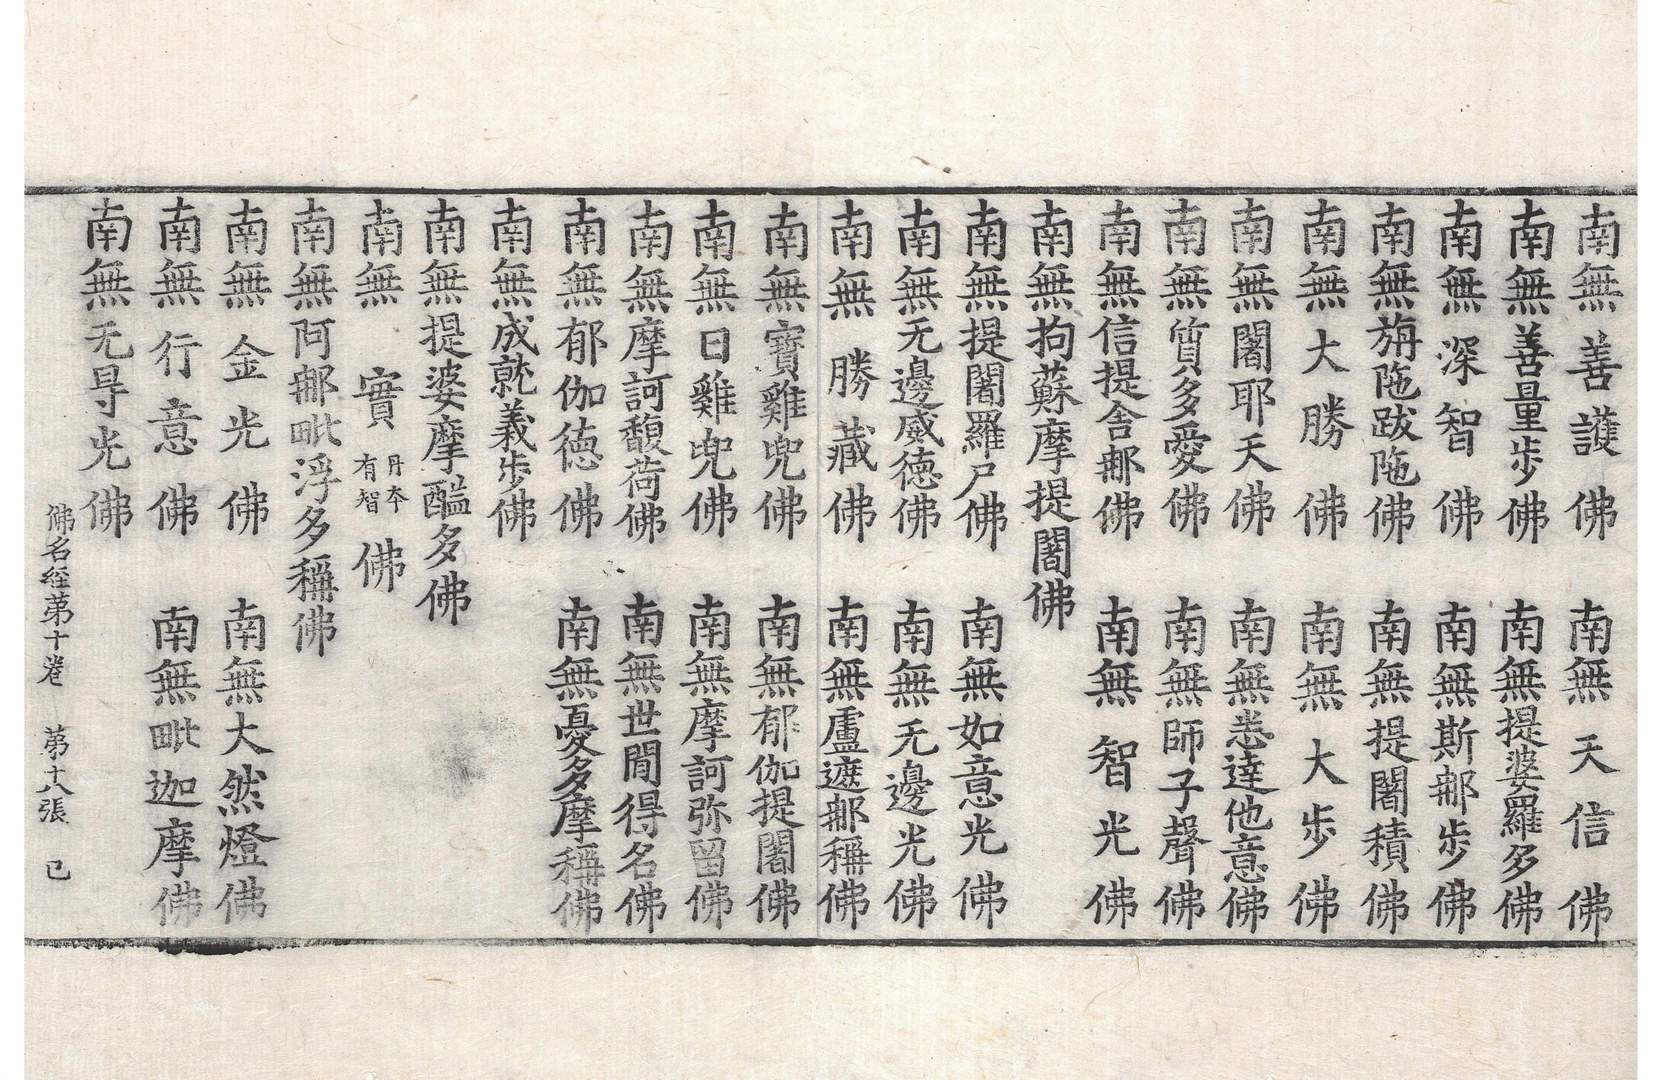 南無善護佛 南無天信佛
南無善量步佛 南無提婆羅多佛
南無深智佛 南無斯那步佛
南無旃陁跋陁佛 南無提闍積佛
南無大勝佛 南無大步佛
南無闍耶天佛 南無悉達他意佛
南無質多愛佛 南無師子聲佛
南無信提舍那佛 南無智光佛
南無拘蘇摩提闍佛
南無提闍羅尸佛 南無如意光佛
南無无邊威德佛 南無无邊光佛
南無勝藏佛 南無盧遮那稱佛
南無寶雞兜佛 南無郁伽提闍佛
南無日雞兜佛 南無摩訶弥留佛
南無摩訶馥荷佛 南無世閒得名佛
南無郁伽德佛 南無憂多摩稱佛
南無成就義步佛
南無提婆摩醯多佛
南無實丹本有智佛
南無阿那毗浮多稱佛
南無金光佛 南無大然燈佛
南無行意佛 南無毗迦摩佛
南無无㝵光佛
佛名經第十卷 第十八張 己